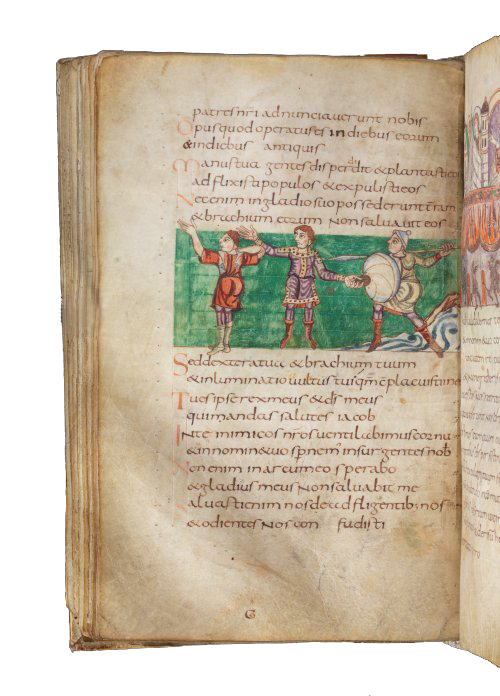 patres nri adnunciaverunt nobis
Opus quod operatus es in diebus eorum
& in diebus antiquis
Manus tua gentes disperdit & plantasti eos
adflixisti populos & expulisti eos
Nec enim in gladio suo possederunt tram
& brachium eorum Non salvabit eos
Sed dextera tua & brachium tuum
& inluminatio vultus tui qm cplacuisti in e
Tu es ipse rex meus & ds meus
qui mandas salutes iacob
INte inimicos nros ventilabimus cornu
& in nomine tuo spnem insurgentes nob
Non enim in arcu meo sperabo
& gladius meus Non salvabit me
Salvasti enim nos de adfligentib; nos
& odientes Nos con fudisti
G